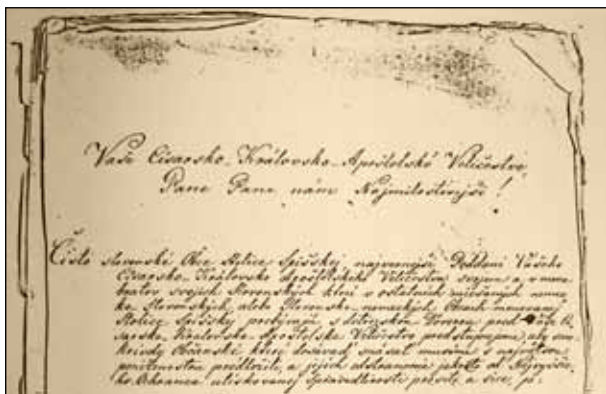 Vaše Císarsko-Královsko-Apoštolské Veličenstvo,
Pane Pane nám Najmilostivejší!
Čisto slovenské Obce Stolice Spišskej najvernejší Poddaní Vášeho
Císarsko-Královsko Apoštolského Veličenstva svojem a v mene
bratov svojich Slovenských, ktorí v ostatních miešaných
Slovenských, alebo Slovensko nemeckých Obcach menovanej
Stolice Spišskej prebývajú s dôverou pred Vaše
Královsko Apoštolské Veličenstvo predstupujeme, aby
krivdy Občanské, ktoré dosavád snášať musíme s najväčšou
predložili, a jejich odstránenia jakožto od Najvyššie-
ho Ochrancu utiskovanej Spravedlnosti prosili, a síce, já: